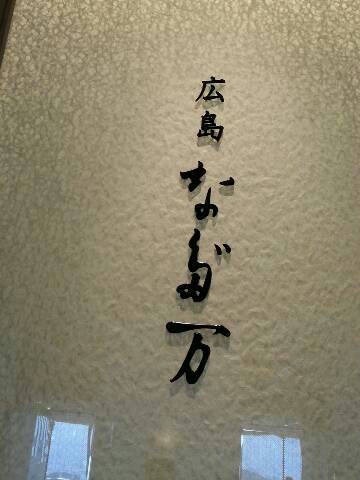 広島
なだ万